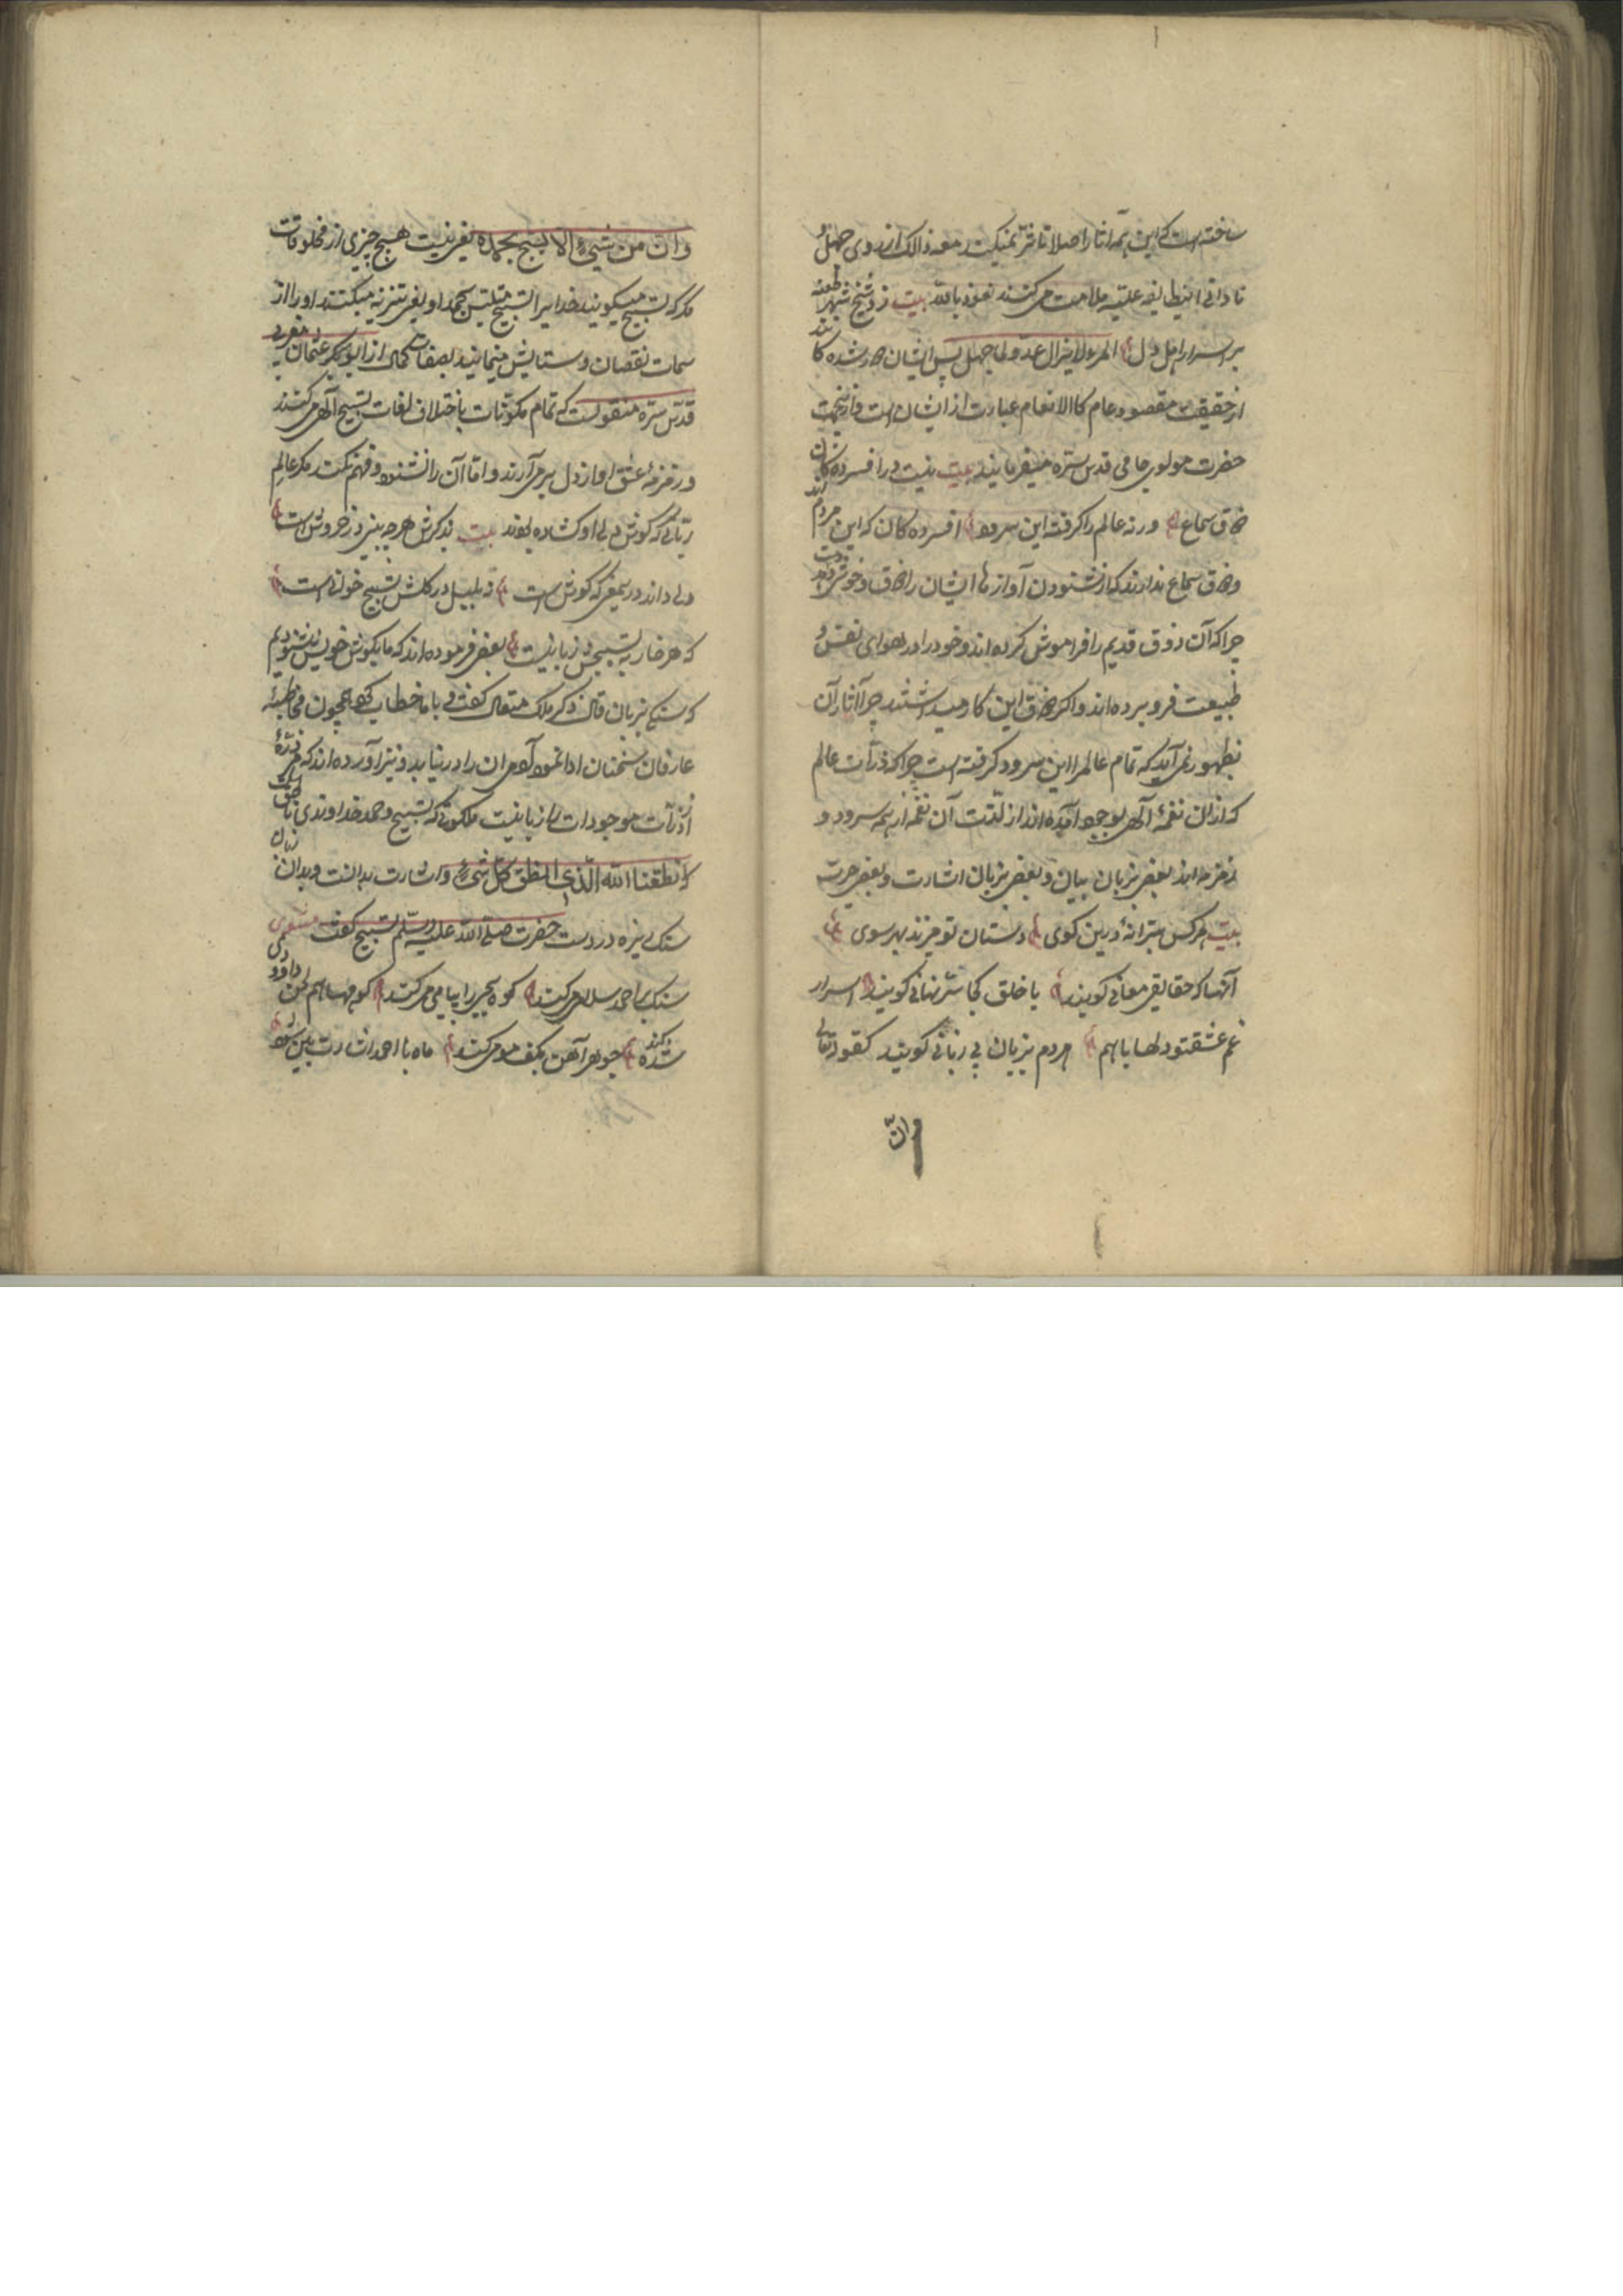 ساخته است که این همه آنها را اصلا تأثر نمیکند مع ذالک از روی جهل و
نادانی اینطایفه علیه ملامت می کنند نعوذ بالله بیت زد شیخ شهر طعنه
بر اسرار اهل دل المرء لا یزال عدوا لما جهل پس ایشان دور شده کانند
از حقیقت مقصود عام کالانعام عبارت از ایشان است و ازینجهت
حضرت مولوی جامی قدس سره میفرمایند بیت نیست در افسرده کان
ذوق سماع ورنه عالم را کرفته این سرود افسرده کان که این مردم اند
ذوق سماع ندارند که از شنودن آوازها ایشان را ذوق و خوشی دست دهد
چرا که آن ذوق قدیم را فراموش کرده اند و خود را در هوای نفس و
طبیعت فرو برده اند و اکر ذوق این کار میداشتند چرا آثار آن
بظهور نمی آید که تمام عالم را این سرود کرفته است چرا که ذرات عالم
که از ان نغمهٔ آلهی بوجود آمده اند از لذت آن نغمه از همه سرود و
زمزمه اند بعضی بزبان بیان و بعضی بزبان اشارت و بعضی حیرت
بیت هر کس بترانهٔ درین کوی دستان تو میزند بهر سوی
آنها که حقایق معانی کویند با خلق کجا سر نهانی کویند اسرار
غم عشقتو دلها باهم مردم بزبان بی زبانی کویند کقوله تعالی
وان
وان من شیء الا یسبح بحمده یعنی نیست هیچ چیزی از مخلوقات
مکر که تسبیح میکویند خدایرا تسبیح متلبس بحمد او یعنی تنزیه میکنند او را از
سمات نقصان و ستایش مینمایند بصفات کمال از ابو بکر عثمان مغربی
قدس سره منقولست که تمام مکونات باختلاف لغات تسبیح آلهی می کنند
و زمزمهٔ عشق او از دل بر می آرند و اما آن را نشنود و فهم نکند مکر عالم
ربانی که کوش دل او کشاده بود بیت بذکرش هرچه بینی در خروش است
ولی داند درین معنی که کوش است نه بلبل در کلش تسبیح خوانی است
که هر خاری به تسبیحش زبانیست بعضی فرموده اند که ما بکوش خویش شنودیم
که سنکی بزبان قال ذکر ملک متعال کفتی و با ما خطاب کردی همچون مخاطبهٔ
عارفان سخنان ادا نمودی که هر ان را در نیابد و نیز آورده اند که هر ذرهٔ
از ذرات موجودات را زبانیست ملکوتی که تسبیح و حمد خداوندی ناطق است
که انطقنا الله الذی انطق کل شیء و اشارت بدانست و بدان زبان
سنک ریزه در دست حضرت صلی الله علیه وسلم تسبیح کفت مثنوی
سنک بر احمد سلامی میکند کوه یحیی را پیامی میکند کوهها هم لحن داودی
شده جوهر آهن بکف مومی کند ماه با احمد اشارت بین شود